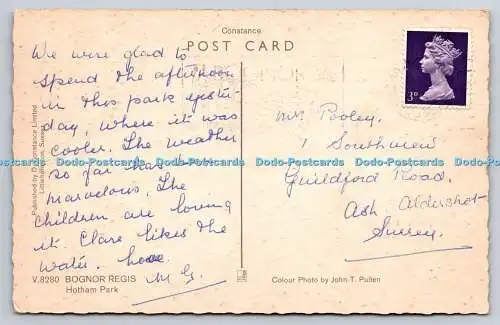 Constance
POST CARD
We were glad to
spend the afternoon
in this park yester-
day, where it was
cooler. The weather
so far has been
marvelous. The
children are loving
it. Clare likes the
water. love
M G.
Mr. Pooley.
1 Southview
Guildford Road,
Ash Aldershot
Surrey.
3D
Published by D. Constance Limited
Littlehampton, Sussex
Dodo-Postcards Dodo-Postcards Dodo-Postcards Dodo-Postcards Dodo-Postcards Dodo-Postcards
V.8280 BOGNOR REGIS
Hotham Park
Colour Photo by John T. Pullen